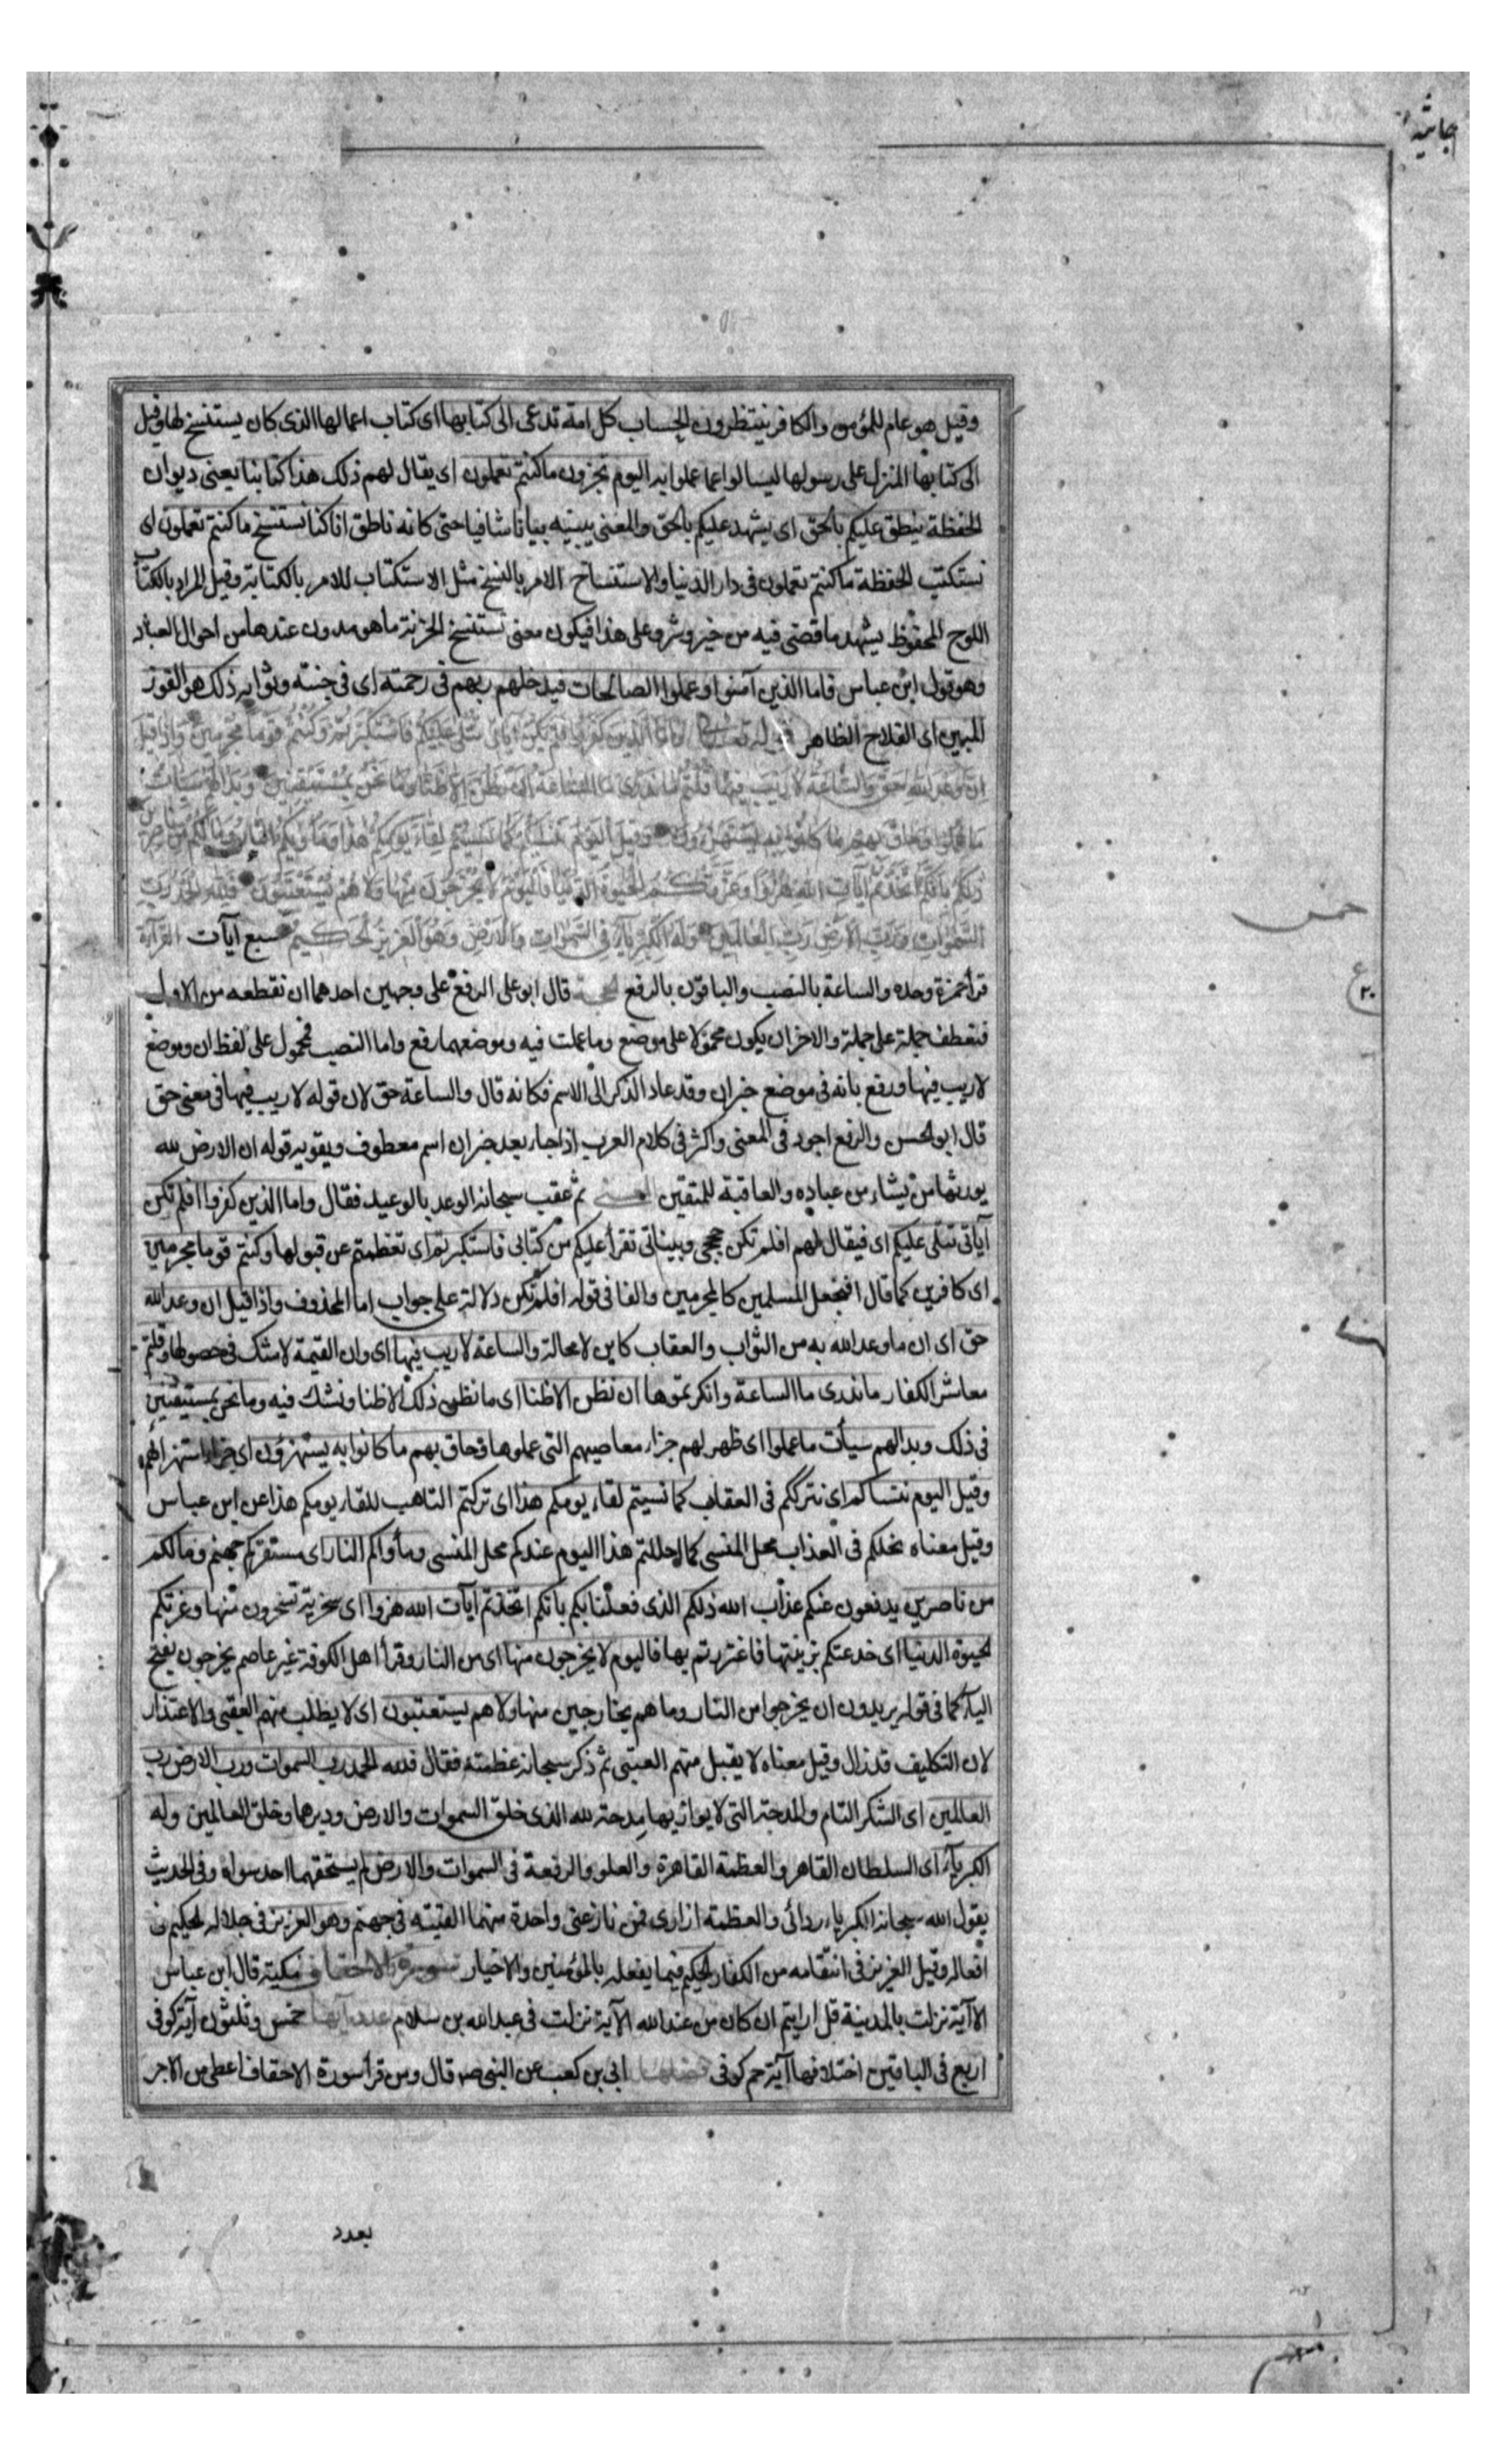 جاثیه
وقيل هو عام للمؤمن والكافر ينتظرون الحساب كل امة تدعى الى كتابها اى كتاب اعمالها الذى كان يستنسخ لها وقيل
الى كتابها المنزل على رسولها ليسالوا عما عملوا به اليوم تجزون ما كنتم تعملون اى يقال لهم ذلك هذا كتابنا يعنى ديوان
الحفظة ينطق عليكم بالحق اى يشهد عليكم بالحق والمعنى يبينه بيانا شافيا حتى كانه ناطق انا كنا نستنسخ ما كنتم تعملون اى
نستكتب الحفظة ما كنتم تعملون فى دار الدنيا والاستنساخ الامر بالنسخ مثل الاستكتاب للامر بالكتابة وقيل المراد بالكتاب
اللوح المحفوظ يشهد ما قضى فيه من خير وشر وعلى هذا فيكون معنى نستنسخ الخزنة ما هو مدون عندها من احوال العباد
وهو قول ابن عباس فاما الذين آمنوا وعملوا الصالحات فيدخلهم ربهم فى رحمته اى فى جنته وثوابه ذلك هو الفوز
المبين اى الفلاح الظاهر قوله تعالى واما الذين كفروا افلم تكن اياتى تتلى عليكم فاستكبرتم وكنتم قوما مجرمين واذا قيل
ان وعد الله حق والساعة لا ريب فيها قلتم ما ندرى ما الساعة ان نظن الا ظنا وما نحن بمستيقنين وبدا لهم سيئات
ما عملوا وحاق بهم ما كانوا به يستهزؤن وقيل اليوم ننسيكم كما نسيتم لقاء يومكم هذا وماويكم النار وما لكم من ناصرين
ذلكم بانكم اتخذتم آيات الله هزوا وغرتكم الحيوة الدنيا فاليوم لا يخرجون منها ولا هم يستعتبون فلله الحمد رب
السموات ورب الارض رب العالمين وله الكبرياء فى السموات والارض وهو العزيز الحكيم سبع آيات القراءة
قرأ حمزة وحده والساعة بالنصب والباقون بالرفع الحجة قال ابو على الرفع على وجهين احدهما ان نقطعه من الاول
فتعطف جملة على جملة والاخر ان يكون محمولا على موضع وما عملت فيه وموضعهما رفع واما النصب فمحمول على لفظ ان وموضع
لا ريب فيها ورفع بانه فى موضع خبران وقد عاد الذكر الى الاسم فكانه قال والساعة حق لان قوله لا ريب فيها فى معنى حق
قال ابو الحسن والرفع اجود فى المعنى واكثر فى كلام العرب اذا جاء بعد خبر ان اسم معطوف ويقويه قوله ان الارض لله
يورثها من يشاء من عباده والعاقبة للمتقين المعنى ثم عقب سبحانه الوعد بالوعيد فقال واما الذين كفروا افلم تكن
آياتى تتلى عليكم اى فيقال لهم افلم تكن حججى وبيناتى تقرأ عليكم من كتابى فاستكبرتم اى تعظمتم عن قبولها وكنتم قوما مجرمين
اى كافرين كما قال افنجعل المسلمين كالمجرمين والفا فى قوله افلم تكن دلالة على جواب اما المحذوف واذا قيل ان وعد الله
حق اى ان ما وعد الله به من الثواب والعقاب كاين لا محالة والساعة لا ريب فيها اى وان القيمة لا شك فى حصولها وقلتم
معاشر الكفار ما ندرى ما الساعة وانكرتموها ان نظن الا ظنا اى ما نظن ذلك الا ظنا ونشك فيه وما نحن بمستيقنين
فى ذلك وبدا لهم سيأت ما عملوا اى ظهر لهم جزاء معاصيهم التى عملوها وحاق بهم ما كانوا به يستهزؤن اى جزاء استهزائهم
وقيل اليوم ننساكم اى نترككم فى العقاب كما نسيتم لقاء يومكم هذا اى تركتم التاهب للقاء يومكم هذا عن ابن عباس
وقيل معناه نحلكم فى العذاب محل المنسى كما احللتم هذا اليوم عندكم محل المنسى ومأواكم النار اى مستقركم جهنم وما لكم
من ناصرين يدفعون عنكم عذاب الله ذلكم الذى فعلنا بكم بانكم اتخذتم آيات الله هزوا اى سخرية تسخرون منها وغرتكم
الحيوة الدنيا اى خدعتكم بزينتها فاغتررتم بها فاليوم لا يخرجون منها اى من النار وقرأ اهل الكوفة غير عاصم يخرجون بفتح
الياء كما فى قوله يريدون ان يخرجوا من النار وما هم بخارجين منها ولا هم يستعتبون اى لا يطلب منهم العتبى والاعتذار
لان التكليف قد زال وقيل معناه لا يقبل منهم العتبى ثم ذكر سبحانه عظمته فقال فلله الحمد رب السموات ورب الارض رب
العالمين اى الشكر التام والمدحة التى لا يوازيها مدحة لله الذى خلق السموات والارض ودبرها وخلق العالمين وله
الكبرياء اى السلطان القاهر والعظمة القاهرة والعلو والرفعة فى السموات والارض لم يستحقهما احد سواه وفى الحديث
يقول الله سبحانه الكبرياء ردائى والعظمة ازارى فمن نازعنى واحدة منهما القيته فى جهنم وهو العزيز فى جلاله الحكيم فى
افعاله وقيل العزيز فى انتقامه من الكفار الحكيم فيما يفعله بالمؤمنين والاخيار سورة الاحقاف مكية قال ابن عباس
الا آية نزلت بالمدينة قل ارايتم ان كان من عند الله الآية نزلت فى عبد الله بن سلام عدد آيها خمس وثلثون آية كوفى
اربع فى الباقين اختلافها آية حم كوفى فضلها ابى بن كعب عن النبى صم قال ومن قرأ سورة الاحقاف اعطى من الاجر
بعدد
خمس
ع
٢٠